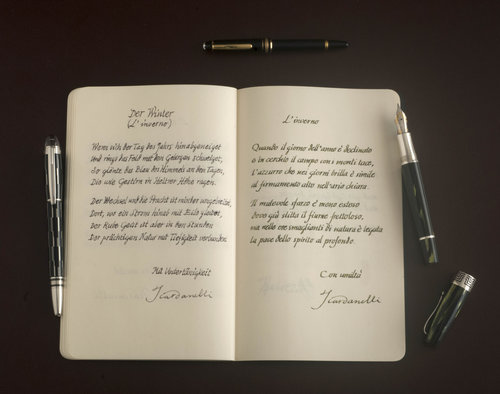 Der Winter
(L'inverno)
Wenn sich der Tag des Jahrs hinabgeneiget
Und rings das Feld mit den Gebirgen schweiget,
So glänzt das Blau des Himmels an den Tagen,
Die wie Gestirn in heitrer Höhe ragen.
Der Wechsel und die Pracht ist minder umgebreitet,
Dort, wo ein Strom hinab mit Eile gleitet,
Der Ruhe Geist ist aber in den Stunden
Der prächtigen Natur mit Tiefigkeit verbunden.
Mit Untertänigkeit
Scardanelli
L'inverno
Quando il giorno dell'anno è declinato
e in cerchio il campo con i monti tace,
L'azzurro che nei giorni brilla è simile
al firmamento alto nell'aria chiara.
Il mutevole sfarzo è meno esteso
dove giù slitta il fiume frettoloso,
ma nelle ore smaglianti di natura è legata
la pace dello spirito al profondo.
Con umiltà
Scardanelli